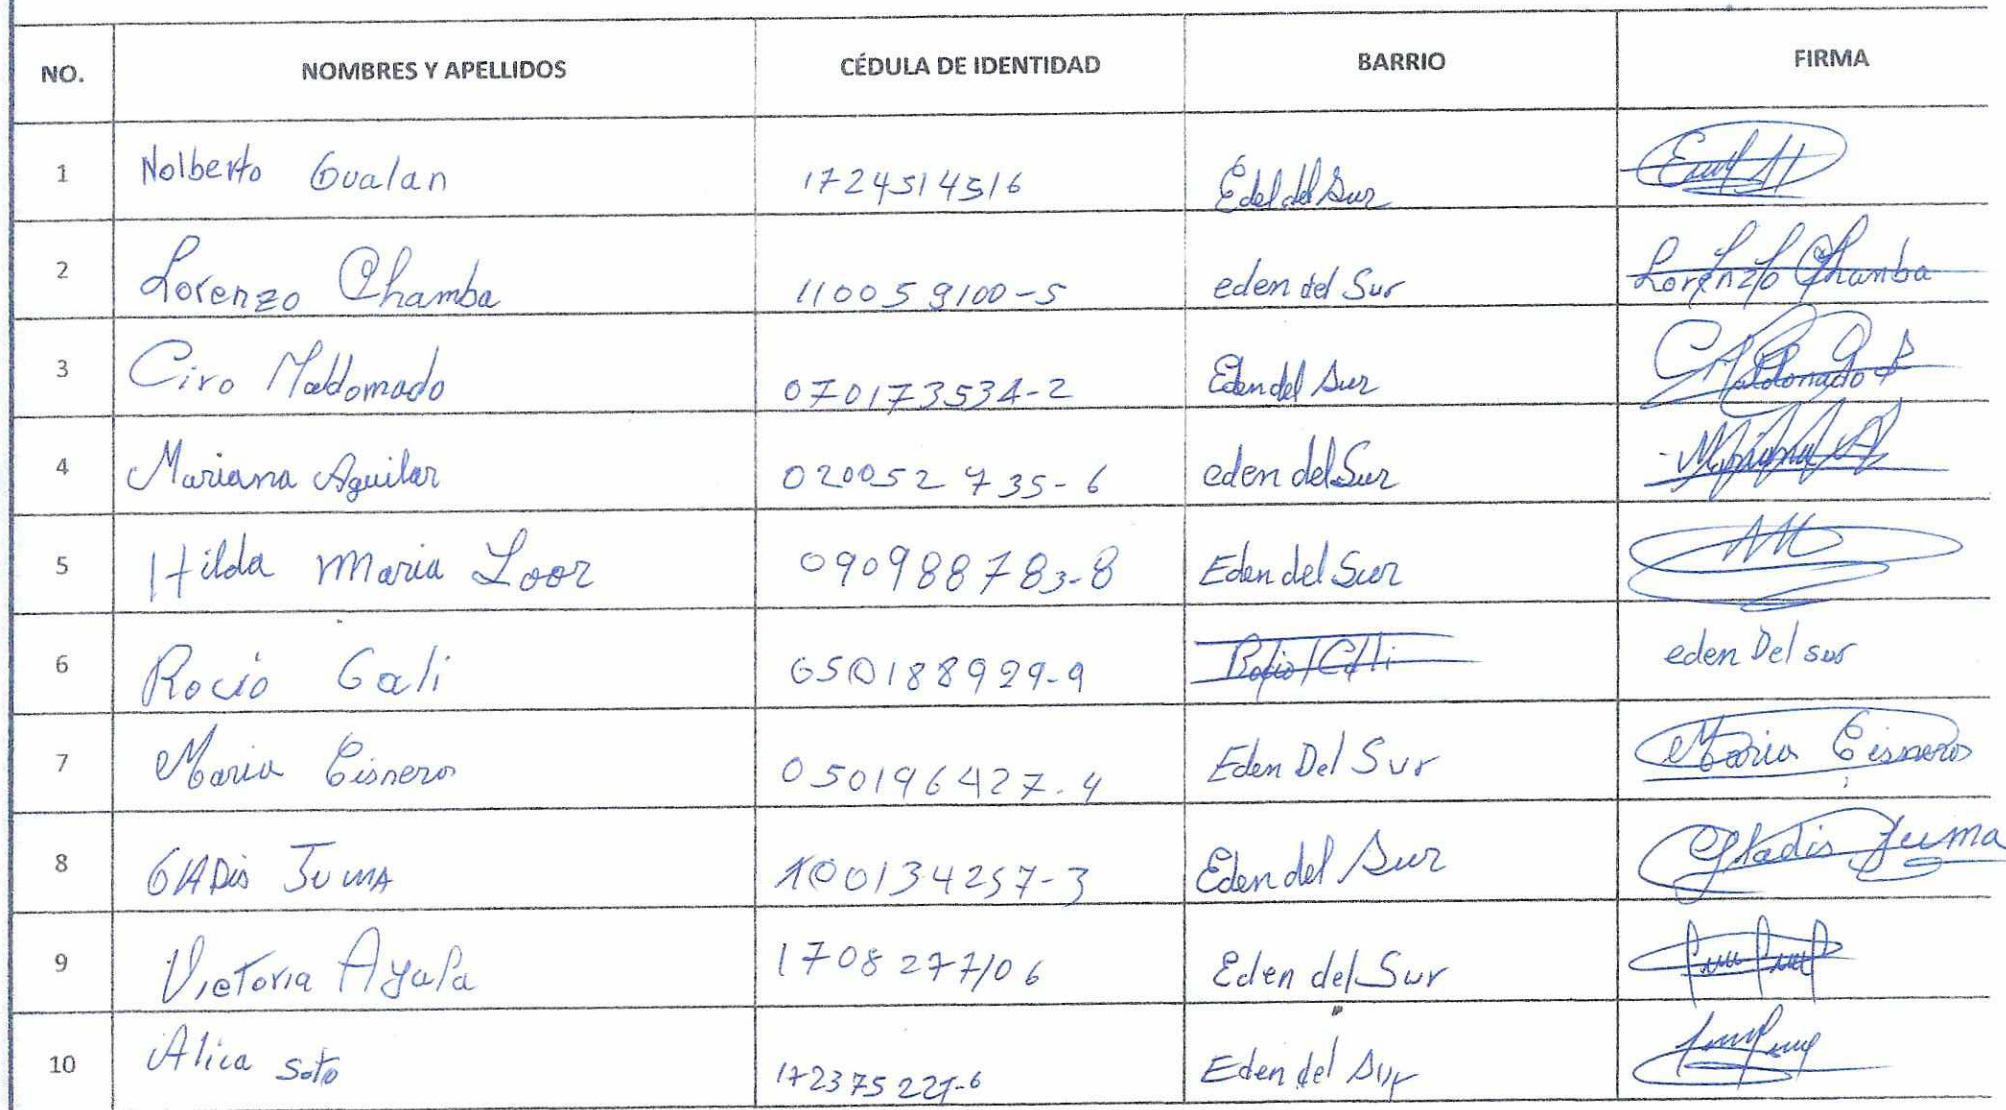 NO. NOMBRES Y APELLIDOS CÉDULA DE IDENTIDAD BARRIO FIRMA
1 Nolberto Gualan 1724514516 Edel del Sur
2 Lorenzo Chamba 110059100-5 eden del Sur Lorenzo Chamba
3 Ciro Maldomado 070173534-2 Eden del Sur Maldonado
4 Mariana Aguilar 020052735-6 eden del Sur
5 Hilda Maria Loor 090988783-8 Eden del Sur
6 Rocio Cali 050188929-9 eden Del sur
7 Maria Cisneros 050196427-4 Eden Del Sur Maria Cisneros
8 GlADis JumA 100134257-3 Eden del Sur Gladis Juma
9 Victoria Ayala 1708277106 Eden del Sur
10 Alica Soto Eden del Sur